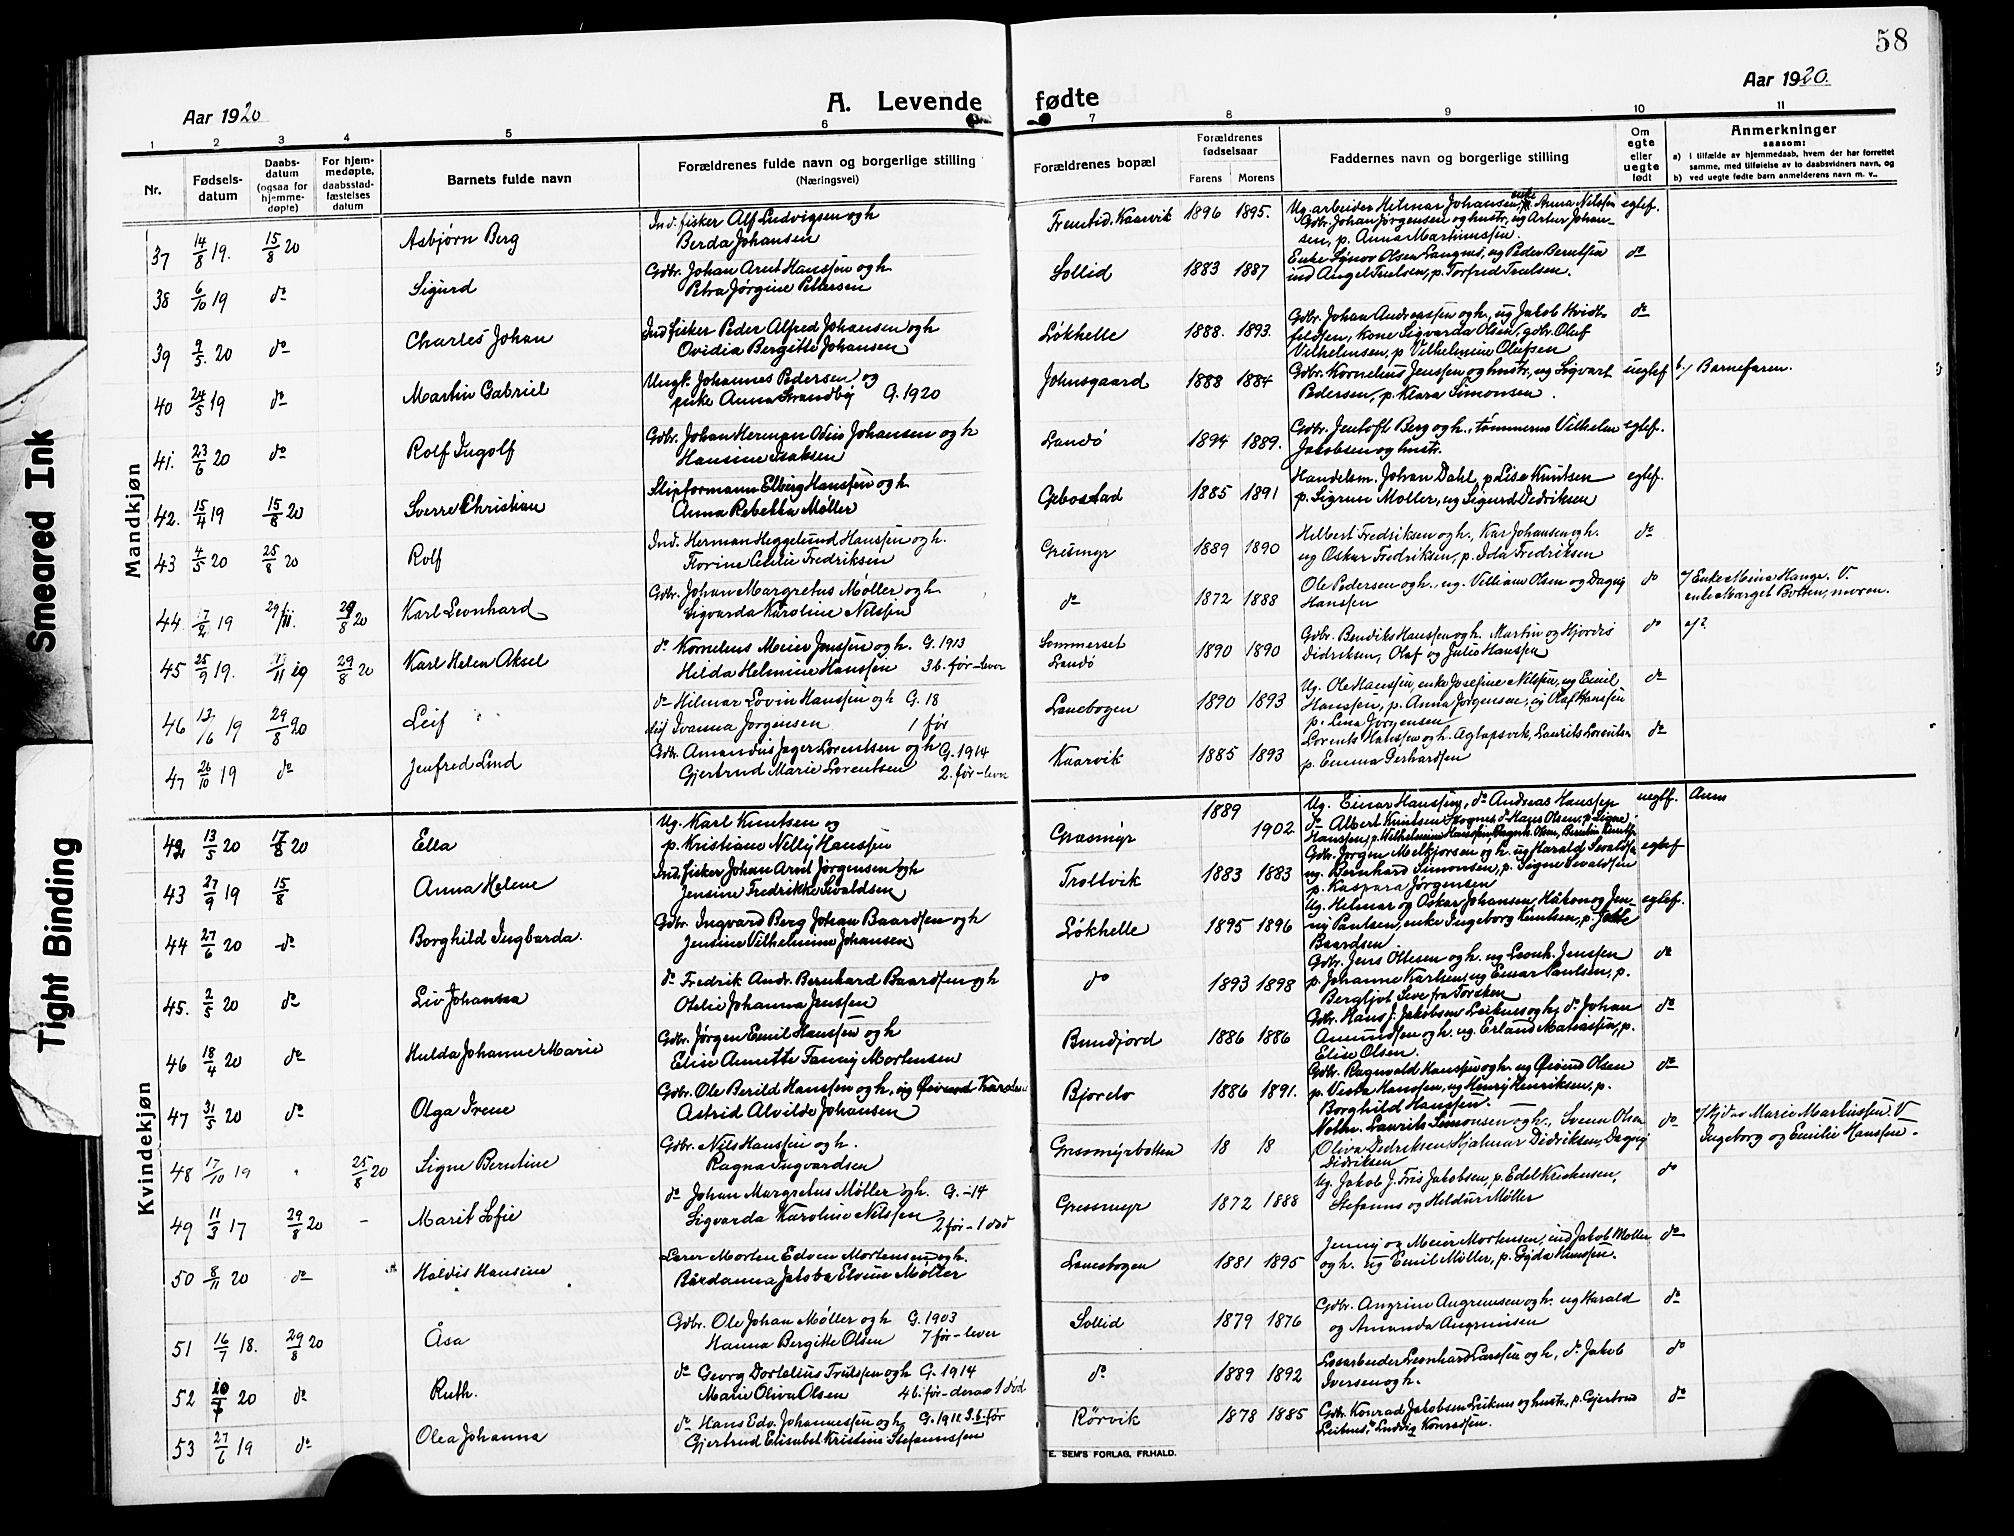 58
Aar 1920
A. Levende fødte
Aar 1920.
1 2 3 4 5 6 7 8 9 10 11
Nr.
Fødsels-
datum
Daabs-
datum
(ogsaa for
hjemme-
døpte)
For hjem-
medøpte,
daabsstad-
fæstelses
datum
Barnets fulde navn
Forældrenes fulde navn og borgerlige stilling
(Næringsvei)
Forældrenes bopæl
Forældrenes
fødselsaar
Farens Morens
Faddernes navn og borgerlige stilling
Om
egte
eller
uegte
født
Anmerkninger
saasom:
a) i tilfælde av hjemmedaab, hvem der har forrettet
samme, med tilføielse av to daabsvidners navn, og
b) ved uegte fødte barn anmelderens navn m. v..
Mandkjøn
37 14/8 19. 15/8 20 Asbjørn Berg
Ind. fisker Alf Ludvigsen og h
Berda Johansen
Fremtid, Kaarvik 1896 1895.
Ug. arbeider Hilmar Johansen, enke Anna Nilssen
Gdbr. Johan Jørgensen og hustr, ug Artur Johan-
sen, p. Anna Martinussen.
egtef.
38 6/10 19 do Sigurd
Gdbr. Johan Arnt Hanssen og h.
Petra Jørgine Pettersen
Sollid 1883 1887
Enke Synov Olsen Langnes, ug Peder Berntsen
ind Angel Trulsen, p. Torfred Trulsen.
do
39 9/5. 20 do Charles Johan
Ind fisker Peder Alfred Johansen og h
Ovidia Bergitte Johansen
Løkhelle 1888. 1893.
Gdbr. Johan Andreassen og h., ug Jakob Hvidt-
feldsen, kone Sigvarda Olsen, gdbr. Oluf
Vilhelmsen, p Vilhelmine Olufsen
do
40 24/5 19 do Martin Gabriel
Ungk. Johannes Pedersen og
pike Anna Strandby G. 1920
Johnsgaard 1888 1884
Gdbr. Kornelius Jenssen og hustr, ug Sigvart
Pedersen, p. Klara Simonsen.
uegtef b./ Barnefaren.
41. 23/6 20 do Rolf Ingolf
Gdbr. Johan Herman Odin Johansen og h
Hansine Isaksen
Landø 1894 1889.
Gdbr. Jentoft Berg og h., tømmerm Vilhelm
Jakobsen og hustr.
egtef.
42. 15/4 19 15/8 20 Sverre Christian
Stipformann Elberg Hanssen og h
Anna Rebekka Møller
Gebostad 1885 1891
Handelsm. Johan Dahl, p Lise Knutsen
p. Sigrun Møller, ug Sigurd Didriksen
egtef.
43 4/5 20 25/8 20 Rolf
Ind. Herman Heggelund Hanssen og h.
Florine Cecilie Fredriksen
Gresmyr 1889 1890
Helbert Fredriksen og h., Kar Johansen og h.
ug Oskar Fredriksen, p. Ida Fredriksen
do
44 7/2 19 29/8 20 Karl Leonhard
Gdbr. Johan Margretus Møller og h.
Sigvarda Karoline Nilssen
do 1872 1888
Ole Pedersen og h., ug. Villiam Olsen og Dagny
Hanssen
do
enke Marget Botten, moren.
45 25/9 19. 29/8 20 Karl Helen Aksel
do Kornelius Meier Jenssen og h. G. 1913
Hilda Helmine Hanssen 3 b. før - lever
Sommerset
Landø
1890 1890
Gdbr. Bendiks Hanssen og h. Martin og Hjørdis
Didriksen, Olaf og Julie Hanssen
do a/?
46 12/6 19 29/8 20 Leif
do Hilmar Lovin Hanssen og h G. 18
Ivanna Jørgensen 1 før
Lanebogen 1890 1893
Ug. Ole Hanssen, enke Josefine Nilssen, ug Emil
Hanssen, p. Anna Jørgensen, ug Olaf Hanssen
p. Lina Jørgensen
do
47 26/10 19 do Jenfred Lind
Gdbr. Amandus Jager Lorentsen og h G. 1914
Gjertrud Marie Lorentsen 2. før - lever
Kaarvik 1885 1893
Lorents Hanssen og h. Aglapsvik, Laurits Lorentsen
p. Emma Gerhardsen
do
Kvindekjøn
42 13/5 20 17/8 20 Ella
Ug. Karl Knutsen og
p. Kristiane Nelly Hanssen
Gressmyr 1889 1902
Ug. Einar Hanssen, do Andreas Hanssen
do Albert Knutsen Hans Olsen, p. Signe
uegtef.
43 27/9 19 15/8 Anna Helene
Ind. fisker Johan Arnt Jørgensen og h
Jensine Fredrikke Sivaldsen
Trollvik 1883 1883
Gdbr. Jørgen Melkjorsen og h. ug Harald Sivaldsen
ug. Bernhard Simonsen, p. Signe Sivaldsen
p. Kaspara Jørgensen
egtef
44 27/6 20 do Borghild Ingbarda.
Gdbr. Ingvard Berg Johan Baardsen og h
Jensine Vilhelmine Johansen
Løkhelle 1895 1896
Ug. Helmar og Oskar Johansen, Håkon og Jen-
ny Paulsen, enke Ingeborg Knutsen, p.
Baardsen
egtef.
45. 2/5 20 do Liv Johanna
do Fredrik Andr. Bernhard Baardsen og h
Otelie Johanna Jenssen
do 1893 1898
Gdbr. Jens Ottesen og h. ug Leonh. Jenssen
p. Johanne Karlsen, ug Einar Paulsen, p.
Bergljot Sive fra Torsken
do
46 18/4 20 do Hulda Johanne Marie
Gdbr. Jørgen Emil Hanssen og h
Elise Annette Fanny Mortensen
Bundjord 1886 1886
Gdbr. Hans J. Jakobsen Leiknes og h, do Johan
Amundsen og h. ug. Erland Matiassen, p.
Elise Olsen.
do
47 31/5 20 do Olga Irene
Gdbr. Ole Berild Hanssen og h.
Astrid Alvilde Johansen
Bjorelo 1886 1891.
Gdbr. Ragnvald Hanssen og h. ug Øivind Olsen
p. Vesta Hanssen, ug Henry Henriksen, p.
Borghild Hanssen.
do
48 17/10 19 " 25/8 20 Signe Berntine
Gdbr. Nils Hanssen og h.
Ragna Ingvardsen
Gressmyrbotten 18 18
Noth. Laurits Simonsen og h., Svenn Olsen
Oliva Didriksen, Hjalmar Didriksen, Dagny
Didriksen
do Marie Martinssen. V
Ingeborg og Emilie Hanssen.
49 11/3 17 29/8 20 - Marit Sofie
do Johan Margretus Møller og h. G. -14
Sigvarda Karoline Nilssen 2 før - 1 død
Gressmyr 1872 1888
Ug. Jakob J. Friis Jakobsen, p. Edel Kristensen,
Stefanus og Heldur Møller
do
50 8/11 20 do Haldis Hansine
Lærer Morten Edvin Mortensen og h.
Bårdanna Jakoba Elvine Møller
Lanesbogen 1881 1895
Jenny og Meier Mortensen, ind Jakob Møller
og h. ug Emil Møller, p. Gyda Hanssen.
do
51 16/7 18. 29/8 20 Åsa
Gdbr. Ole Johan Møller og h G. 1903
Hanna Bergitte Olsen 7 før - lever
Sollid 1879 1876
Gdbr. Angrim Angrimsen og h. ug Harald
og Amanda Angrimsen
do
52 20 do Ruth.
do Georg Dortelius Trulssen og h G. 1914
Marie Oliva Olsen 4 b. før - derav 1 død
do 1889 1892
Løsarbeider Leonhard Larssen og h., do Jakob
Iversen og h.
do
53 27/6 19 do Olea Johanna
do Hans Edv. Johannessen og h G. 1911 3 b. før
Gjertrud Elisabet Kristine Stefanussen
Rörvik 1878 1885
Gdbr. Konrad Jakobsen Leiknes og hustr, p. Gjertrud
Leiknes, Ludvig Konradsen.
do
E. SEM'S FORLAG, FR.HALD.
Smeared Ink
Tight Binding